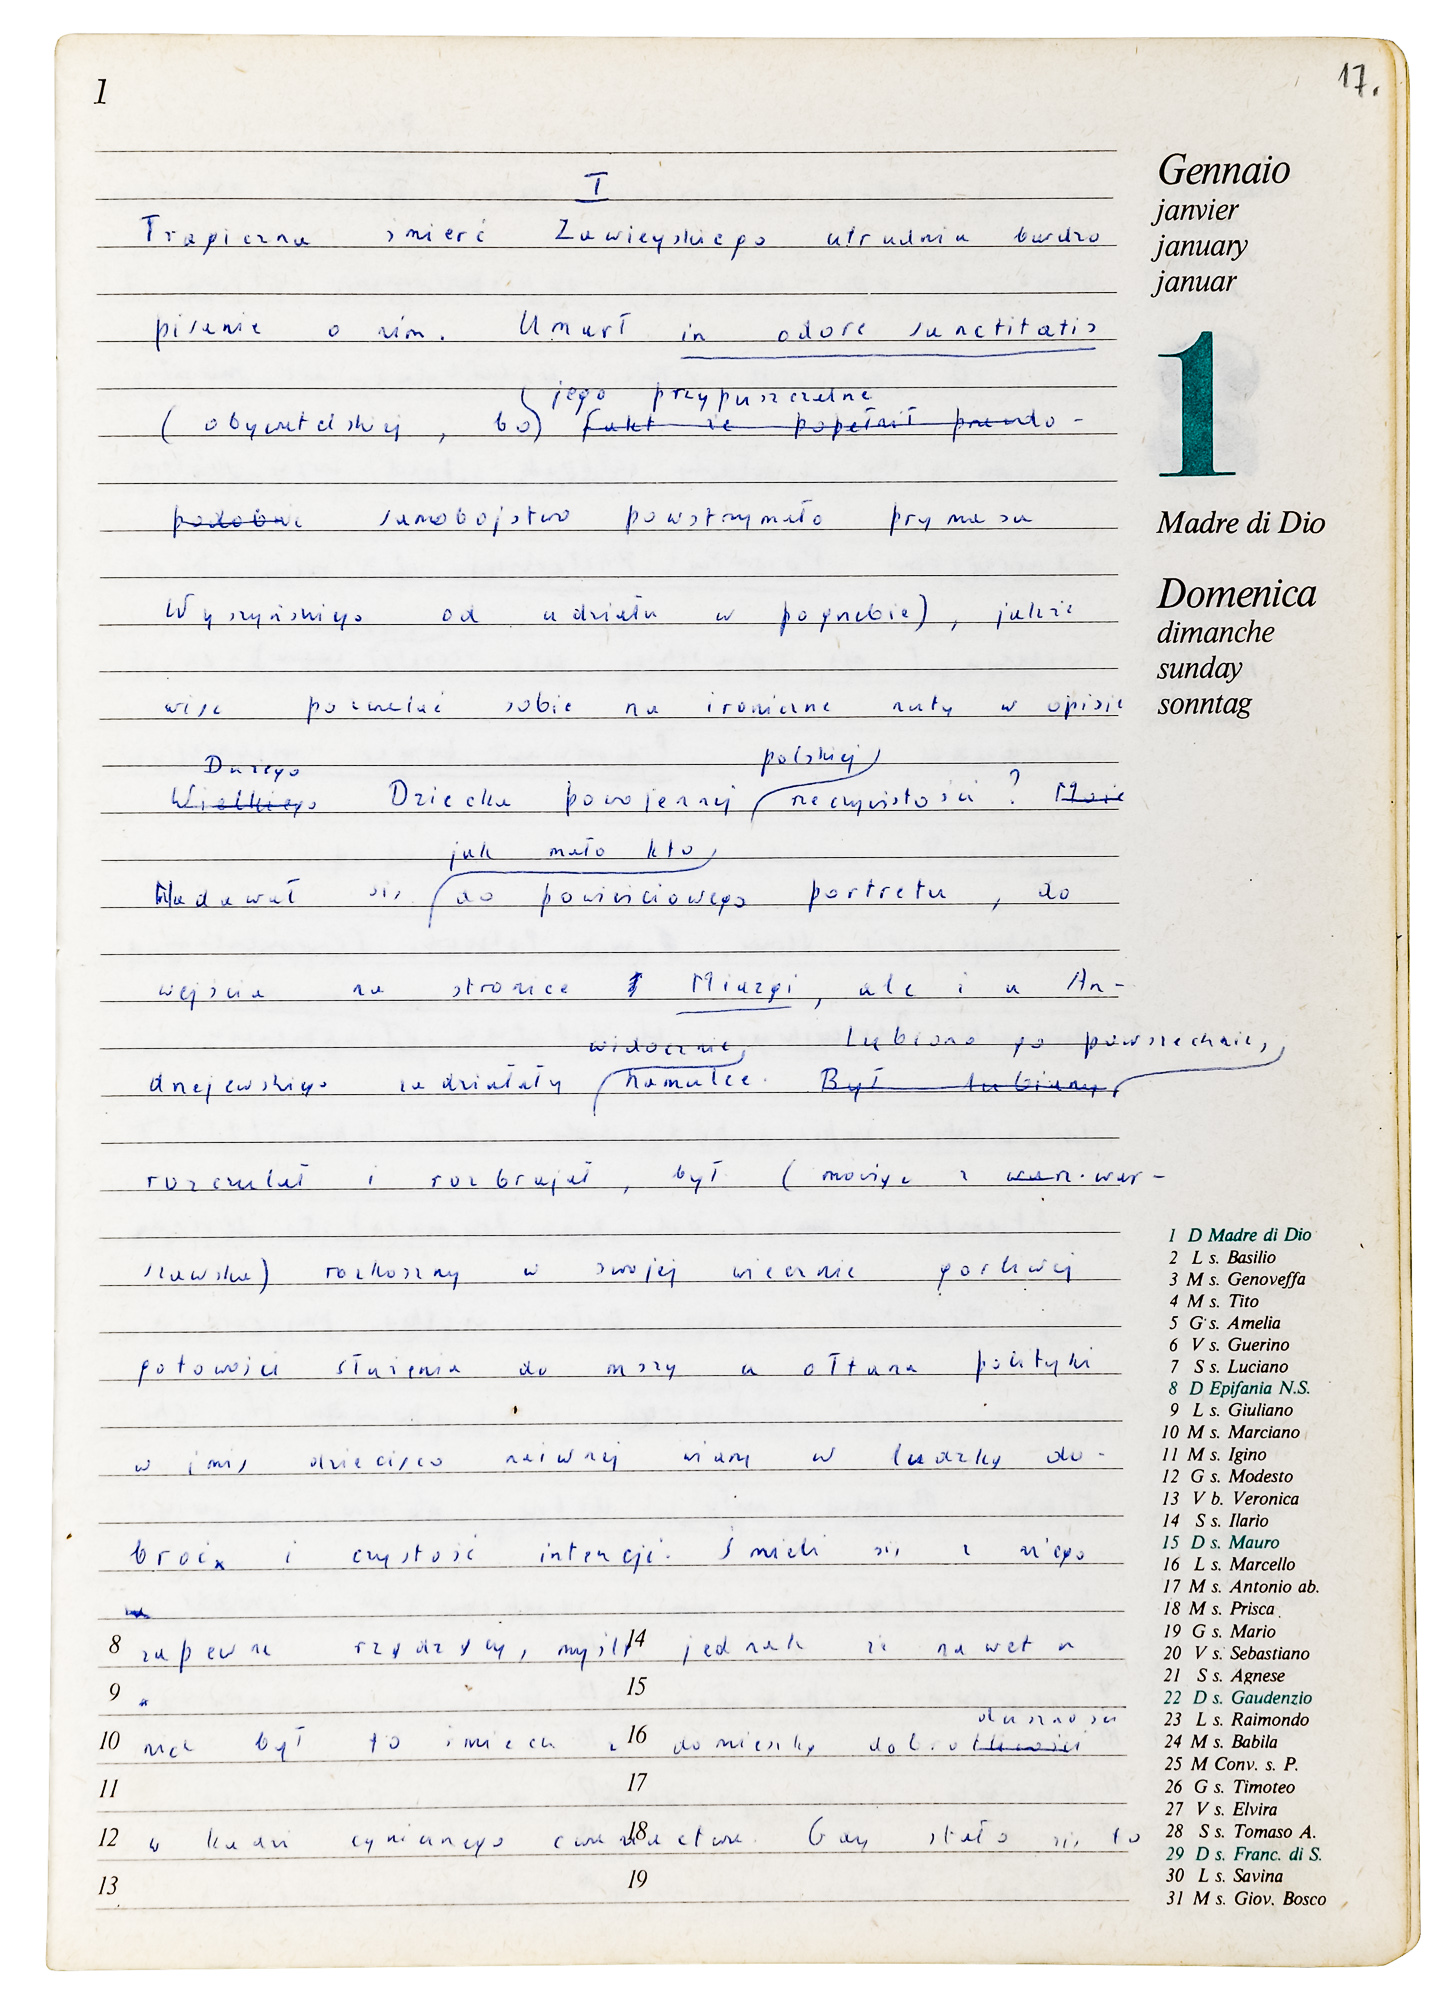 1
17.
I
Tragiczna śmierć Zawieyskiego utrudnia bardzo
pisanie o nim. Umarł in odore sanctitatis
jego przypuszczalne
(obywatelskiej, bo) fakt że popełnił prawdo-
podobnie samobójstwo powstrzymało prymasa
Wyszyńskiego od udziału w pogrzebie), jakże
więc pozwalać sobie na ironiczne nuty w opisie
Dużego polskiej
Wielkiego Dziecka powojennej rzeczywistości? Może
jak mało kto
Nadawał się do powieściowego portretu, do
wejścia na stronice Miazgi, ale i u An-
widocznie, Lubiano go powszechnie,
drzejewskiego zadziałały hamulce. Był lubiany,
rozczulał i rozbrajał, był (mówiąc z war-
szawska) rozkoszny w swojej wiecznie gorliwej
gotowości służenia do mszy u ołtarza polityki
w imię dziecięco naiwnej wiary w ludzką do-
broć i czystość intencji. Śmieli się z niego
zapewne rządzący, myślę jednak że nawet u
duszności
nich był to śmiech z domieszką dobrotliwości
w kadzi cynicznego cwaniactwa. Gdy stało się to
8
9
10
11
12
13
14
15
16
17
18
19
Gennaio
janvier
january
januar
1
Madre di Dio
Domenica
dimanche
sunday
sonntag
1 D Madre di Dio
2 L s. Basilio
3 M s. Genoveffa
4 M s. Tito
5 G s. Amelia
6 V s. Guerino
7 S s. Luciano
8 D Epifania N.S.
9 L s. Giuliano
10 M s. Marciano
11 M s. Igino
12 G s. Modesto
13 V b. Veronica
14 S s. Ilario
15 D s. Mauro
16 L s. Marcello
17 M s. Antonio ab.
18 M s. Prisca
19 G s. Mario
20 V s. Sebastiano
21 S s. Agnese
22 D s. Gaudenzio
23 L s. Raimondo
24 M s. Babila
25 M Conv. s. P.
26 G s. Timoteo
27 V s. Elvira
28 S s. Tomaso A.
29 D s. Franc. di S.
30 L s. Savina
31 M s. Giov. Bosco